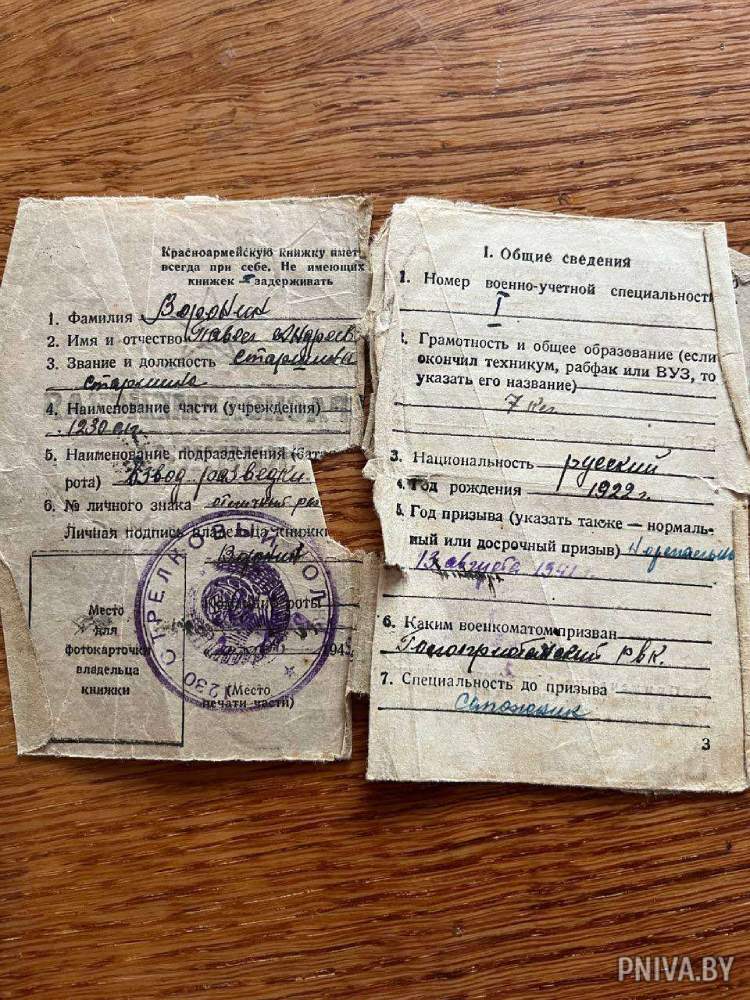 Красноармейскую книжку имет
всегда при себе. Не имеющих
книжек — задерживать
1. Фамилия Воронин
2. Имя и отчество Павел Андреев
3. Звание и должность старшина
старшина
4. Наименование части (учреждения)
1230 сп
5. Наименование подразделения (бата
рота) Взвод разведки
6. № личного знака
Личная подпись владельца книжки
Воронин
роты
194
Место
для
фотокарточки
владельца
книжки
(Место
печати части)
1230 СТРЕЛКОВЫЙ ПОЛ
I. Общие сведения
1. Номер военно-учетной специальност
1
2. Грамотность и общее образование (если
окончил техникум, рабфак или ВУЗ, то
указать его название)
7 кл
3. Национальность русский
4. Год рождения 1922 г.
5. Год призыва (указать также — нормаль-
ный или досрочный призыв)
13 августа 1941 г.
6. Каким военкоматом призван
рвк.
7. Специальность до призыва
Сапожник
3
PNIVA.BY